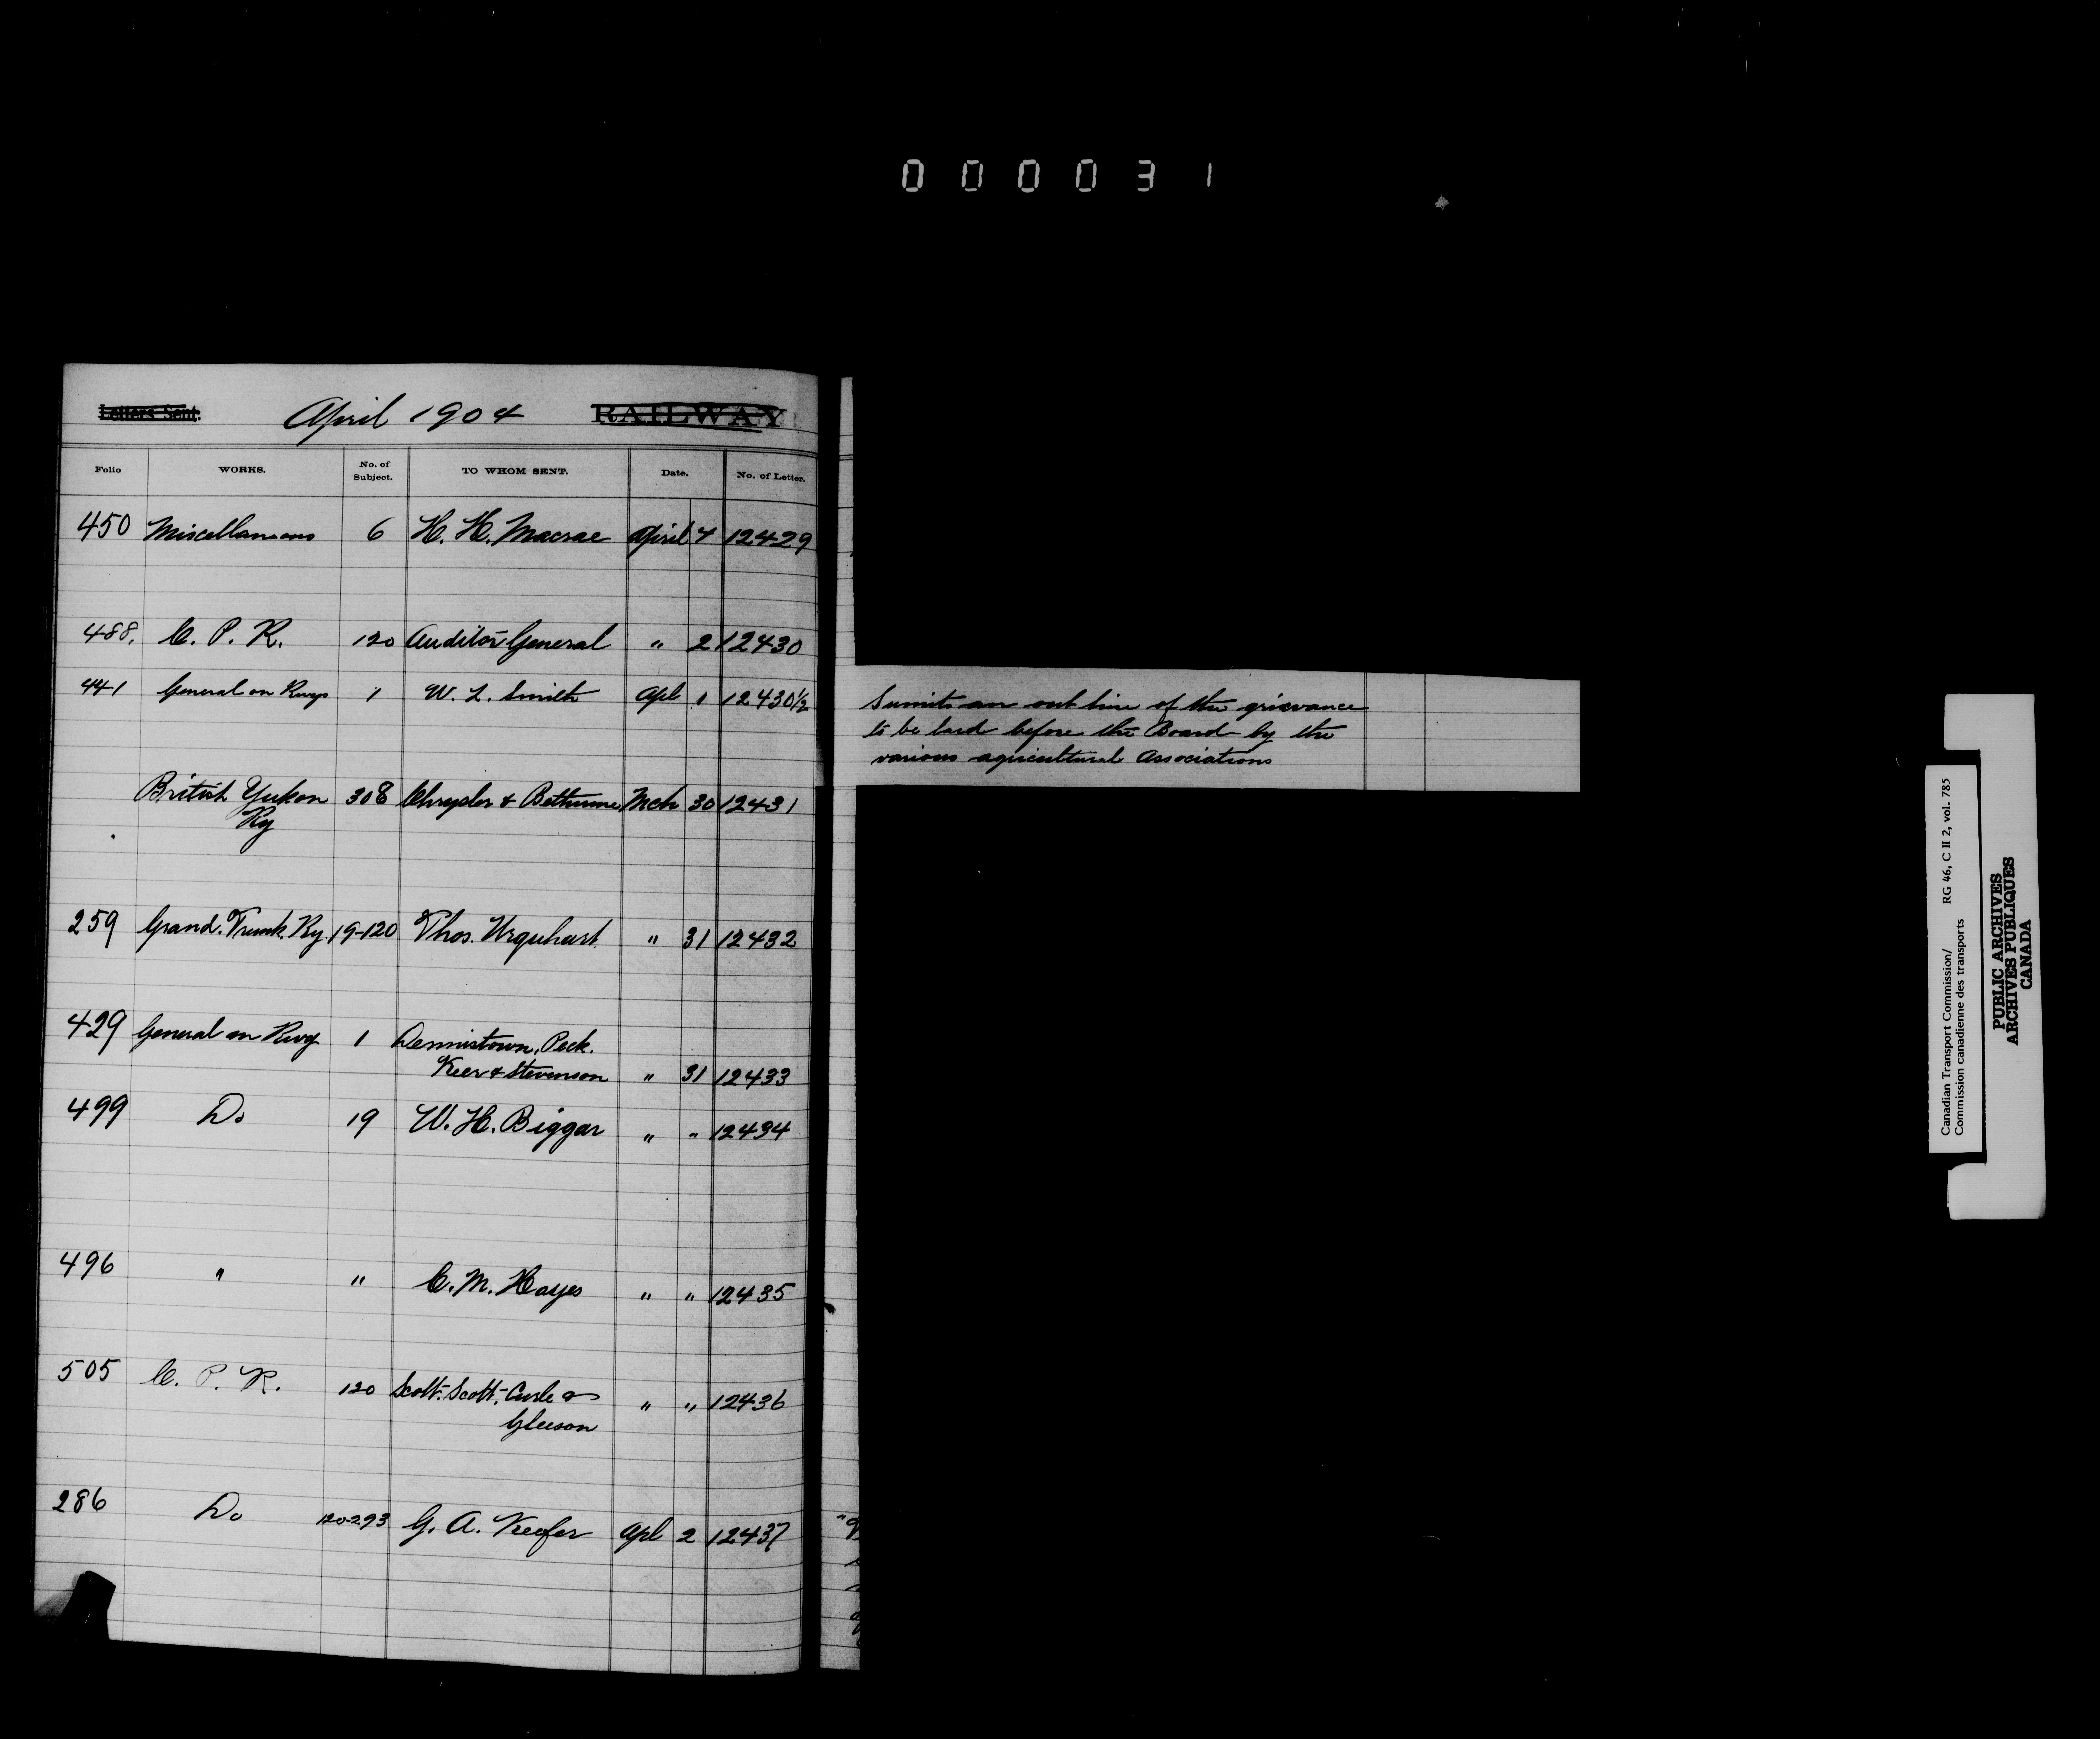 000031
Letters Sent. April 1904 RAILWAY
Folio WORKS. No. of Subject. TO WHOM SENT. Date. No. of Letter.
450 Miscellaneous 6 H. H. Macrae April 4 12429
488. C. P. R. 120 Auditor General " 2 12430
441 General on Rwys 1 W. L. Smith Apl 1 12430½
Sumits an out line of the grievance
to be laid before the Board by the
various agricultural Associations
British Yukon 308 Chrysler & Bethune Mch 30 12431
Ry
259 Grand Trunk Ry. 19-120 Thos. Urquhart " 31 12432
429 General on Rwy 1 Dennistown, Peck.
Kerr & Stevenson " 31 12433
499 Do 19 W. H. Biggar " " 12434
496 " " C. M. Hayes " " 12435
505 C. P. R. 120 Scott, Scott, Curle &
Gleeson " " 12436
286 Do 120-293 G. A. Keefer Apl 2 12437
Canadian Transport Commission/ RG 46, C II 2, vol. 785
Commission canadienne des transports
PUBLIC ARCHIVES
ARCHIVES PUBLIQUES
CANADA